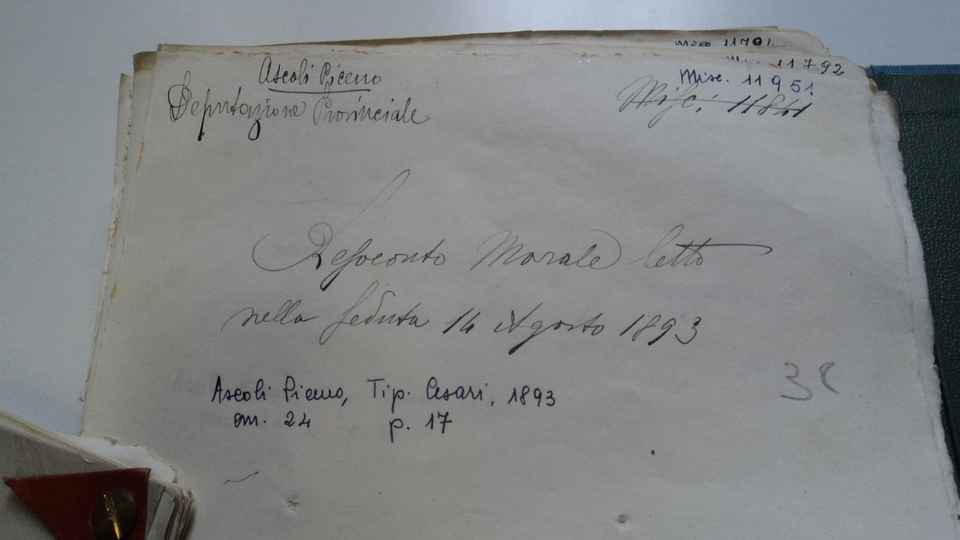 Misc 11701
Mi. 11792
Misc. 11951
Ascoli Piceno
Deputazione Provinciale
Misc. 11841
Resoconto Morale letto
nella seduta 14 Agosto 1893
Ascoli Piceno, Tip. Cesari, 1893
cm. 24 p. 17